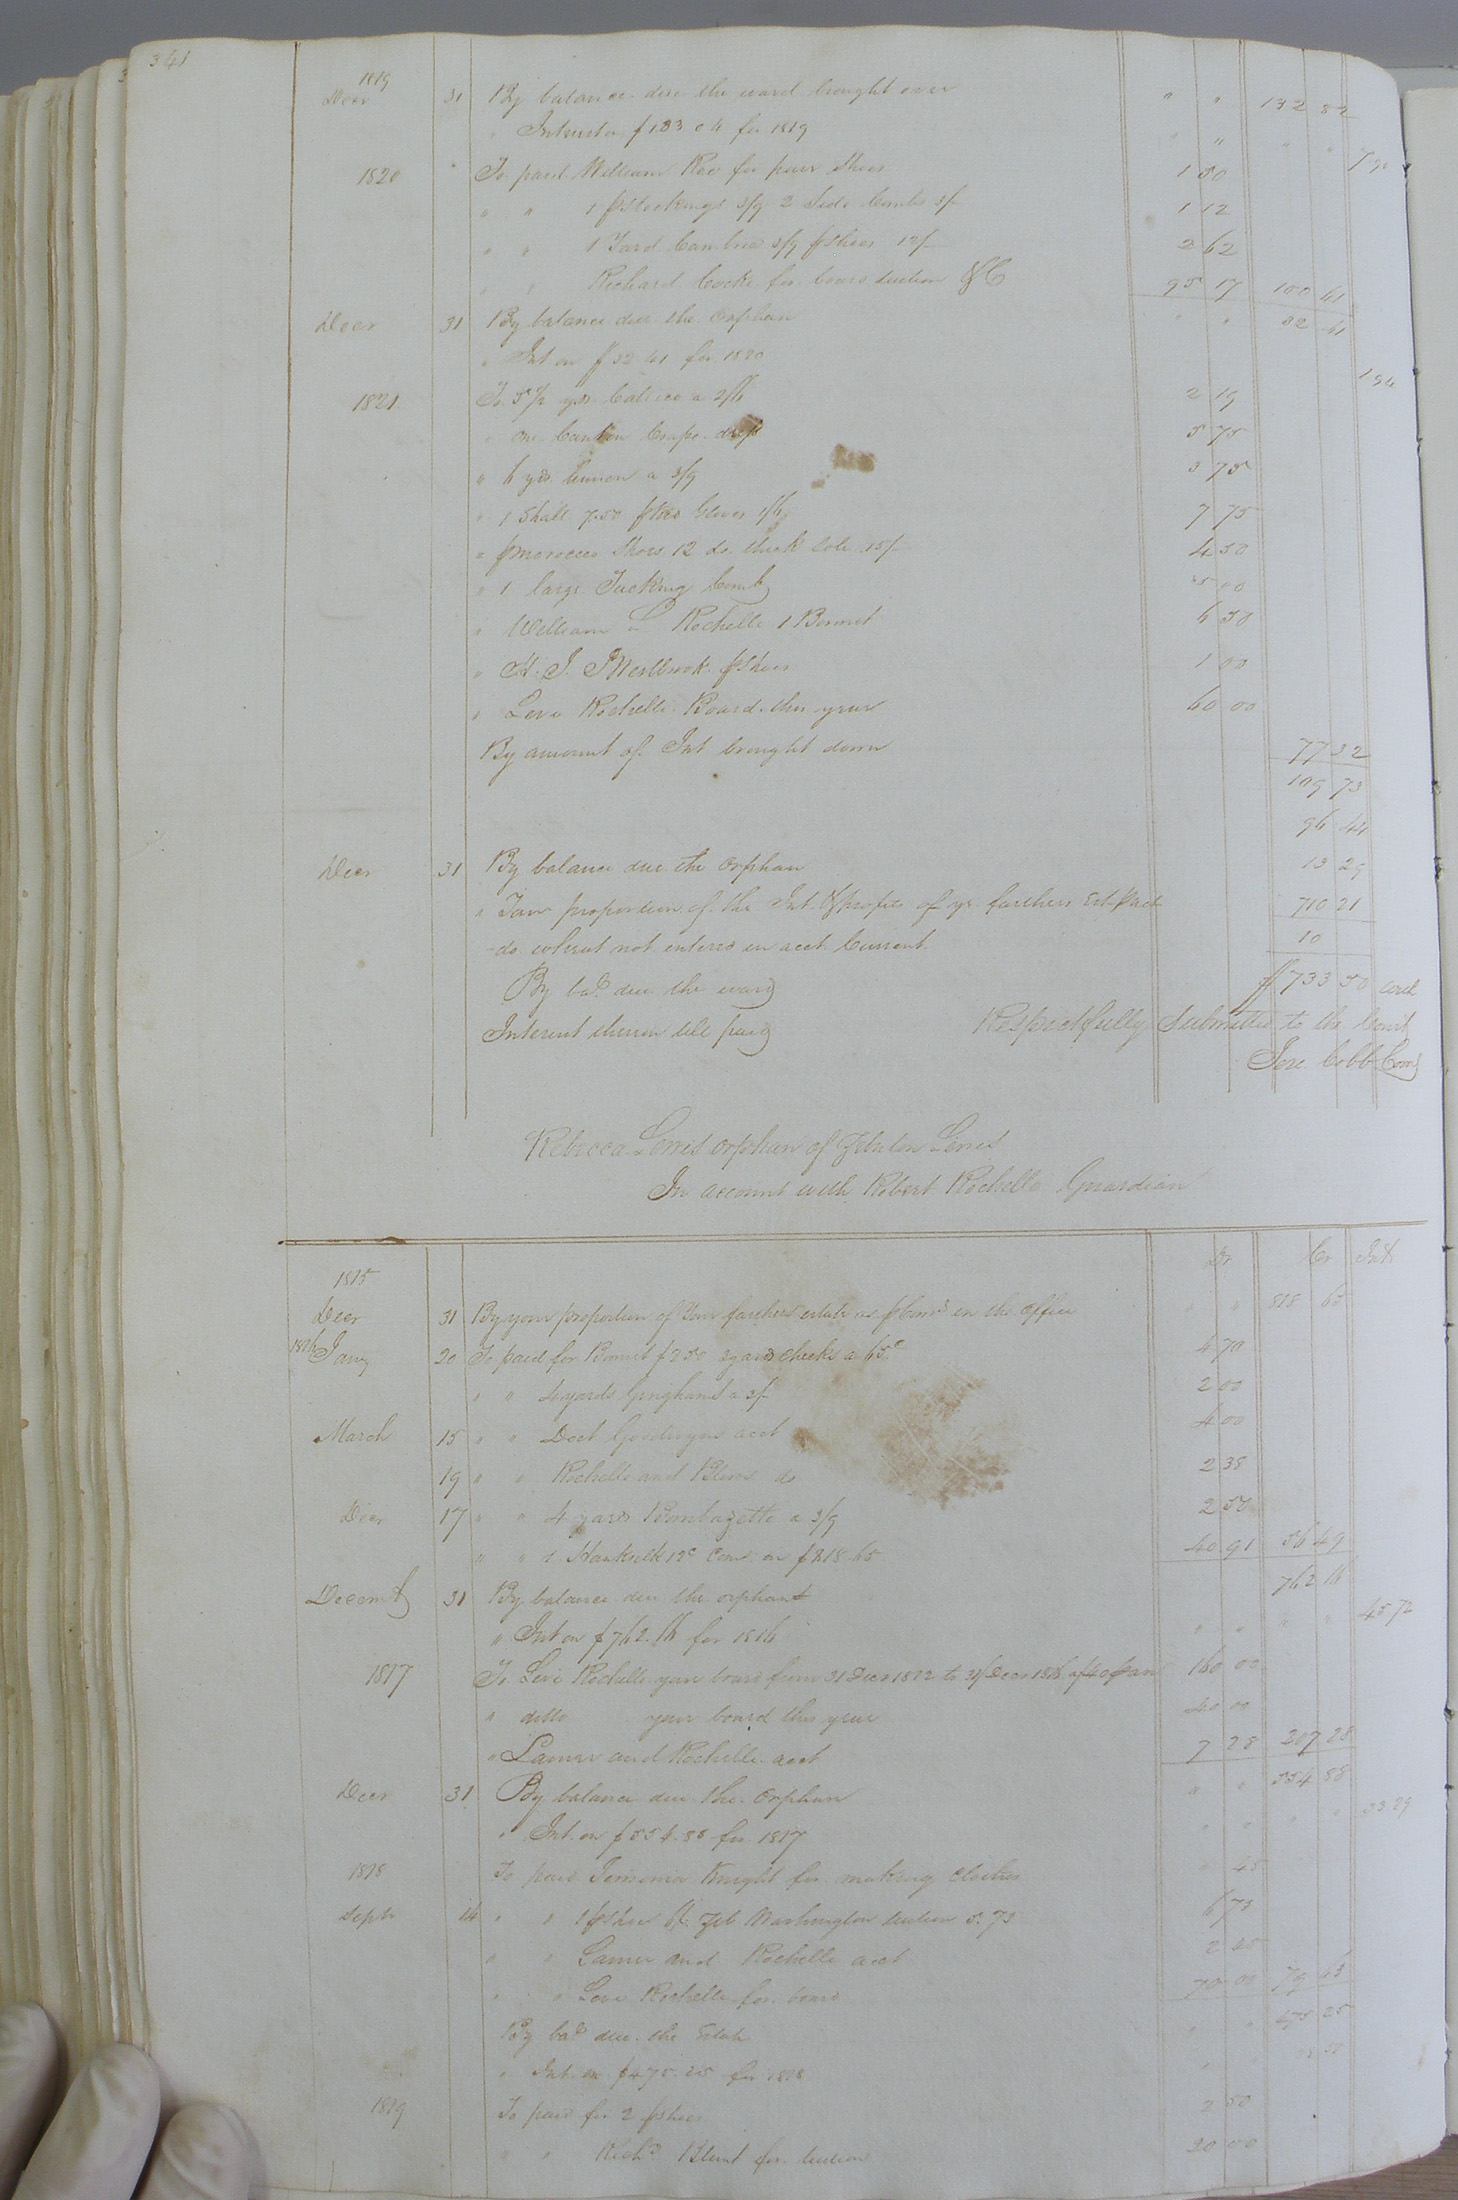 341
1819
Decr 31 By balance due the ward brought over " " 132 82
" Interest on $133 04 for 1819 " " " " 7 98
1820 To paid William Roe for pair Shoes 1 50
" " 1 p Stockings 3/9 2 Side Combs 3/ 1 12
" " 1 Yard Cambric 3/9 p Shoes 12/ 2 62
" " Richard Cocke for board tuition &C 95 17 100 41
Decr 31 By balance due the Orphan " " 32 41
" Int on $32 41 for 1820 1 94
1821 To 5 1/2 yds Callico a 2/ 2 19
" one Canton Crape dress 5 75
" 6 yds linnen a 3/9 3 75
" 1 Shall 7.50 p Gloves 7 75
" p morocco Shoes 12 do thick sole 15/ 4 50
" 1 large Tucking Comb 5 00
" William L Rochelle 1 Bonnet 6 50
" H. J. Westbrook p Shoes 1 00
" Levi Rochelle Board this year 40 00
By amount of Int brought down 77 32
109 73
96 44
Decr 31 By balance due the Orphan 13 29
" Your proportion of the Int & profits of yr farthers Est
do wheat not entered in acct Current 710 21
10
By bal due the ward $733 50
Interest thereon till paid Respectfully Submitted to the Court
Jere Cobb Comr
Rebecca Lewis orphan of Zebulon Lewis
In account with Robert Rochelle Guardian
Dr Cr Int
1815
Decr 31 By your proportion of your farthers estate as p Comrs in the office " " 818 65
1816 Jany 20 To paid for Bonnit $2 50 yards checks a 65c 4 70
" " 4 yards Ginghams a 3/ 2 00
March 15 " " Doct Goodwyns acct 4 00
19 " " Rochelle and do 2 38
Decr 17 " " 4 yards Bombazette a 3/9 2 50
" " Com on $818 65 40 91 56 49
Decemb 31 By balance due the orphant 762 16
" Int on $762.16 for 1816 " " " " 45 72
1817 To Levi Rochelle your board from 31 Decr 1812 to 31 Decr 1816 a $40 p an 160 00
" ditto your board this year 40 00
" Lamer and Rochelle acct 7 28 207 28
Decr 31 By balance due the Orphan " " 554 88
" Int on $554.88 for 1817 " " " " 33 29
1818 To paid Jemima Knight for making Clothes " 45
Septr 14 " " 1 p Shoes 6/ Zeb Washington tuition 5.73 6 73
" " Lamer and Rochelle acct 2 45
" " Levi Rochelle for board 70 00 79 63
By bal due the Estate " " 475 25
" Int on $475.25 for 1818 28 50
1819 To paid for 2 p shoes 2 50
" " Richd Blunt for tuition 20 00